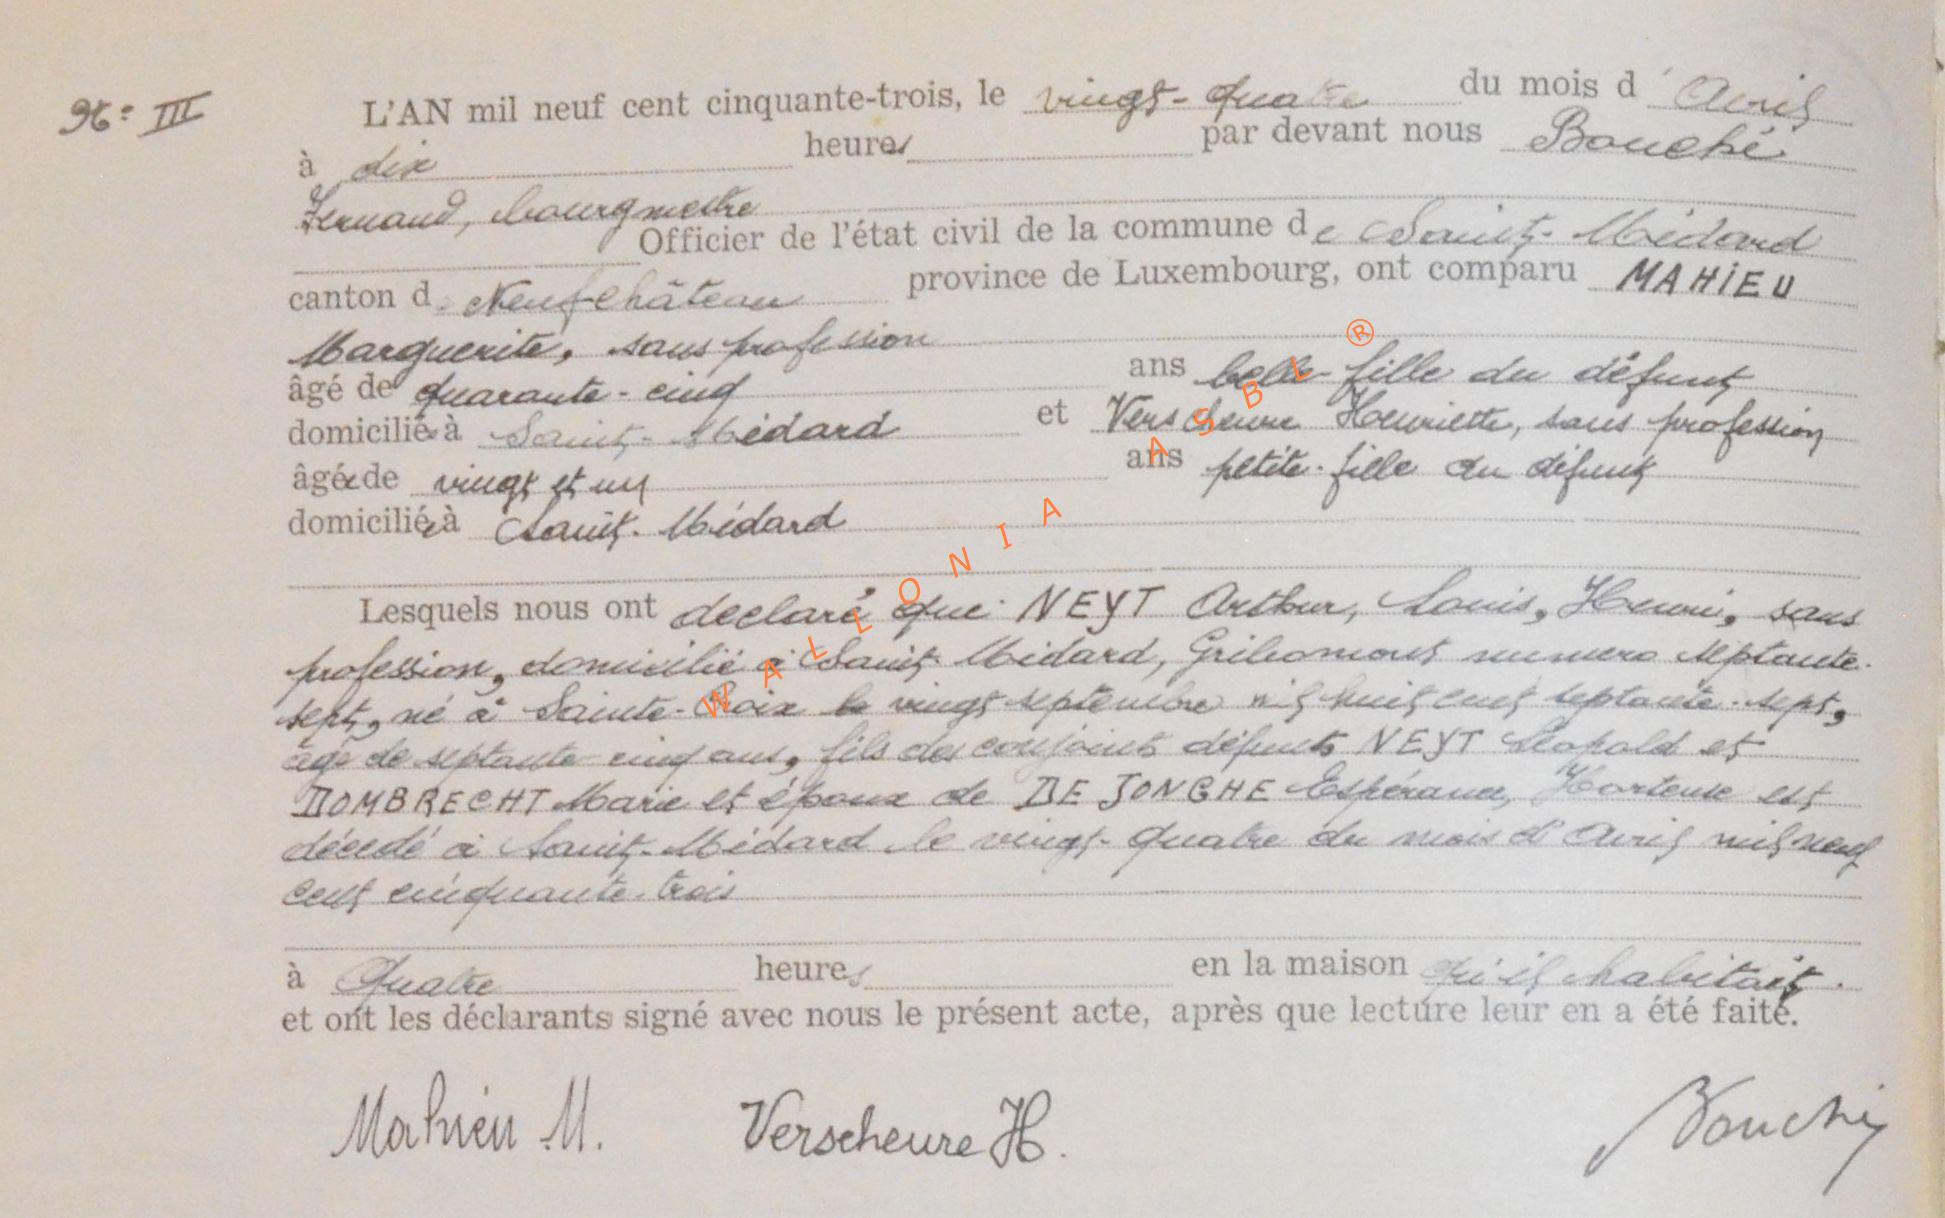 N° III
L'AN mil neuf cent cinquante-trois, le vingt-quatre du mois d' Avril
à dix heures par devant nous Bouché
Fernand, bourgmestre
Officier de l'état civil de la commune de Saint-Médard
canton d. Neufchâteau province de Luxembourg, ont comparu MAHIEU
Marguerite, sans profession
âgé de quarante-cinq ans belle-fille du défunt
domiciliée à Saint-Médard et Verscheure Henriette, sans profession
âgée de vingt et un ans petite-fille du défunt
domiciliée à Saint-Médard
Lesquels nous ont declaré que NEYT Arthur, Louis, Henri, sans
profession, domicilié à Saint-Médard, Gribomont numero septante-
sept, né à Sainte-Croix le vingt septembre mil huit cent septante-sept,
âgé de septante-cinq ans, fils des conjoints défunts NEYT Léopold et
DOMBRECHT Marie et époux de DE JONGHE Espérance, Hortense est
décédé à Saint-Médard le vingt-quatre du mois d'Avril mil neuf
cent cinquante-trois
à Quatre heures en la maison qu'il habitait.
et ont les déclarants signé avec nous le présent acte, après que lecture leur en a été faite.
Mahieu M. Verscheure H. Bouché
WALLONIA ASBL ®